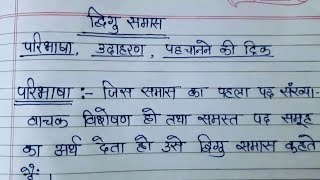 द्विगु समास
परिभाषा, उदाहरण, पहचानने की ट्रिक
परिभाषा :- जिस समास का पहला पद संख्या-
वाचक विशेषण हो तथा समस्त पद समूह
का अर्थ देता हो उसे द्विगु समास कहते
है।